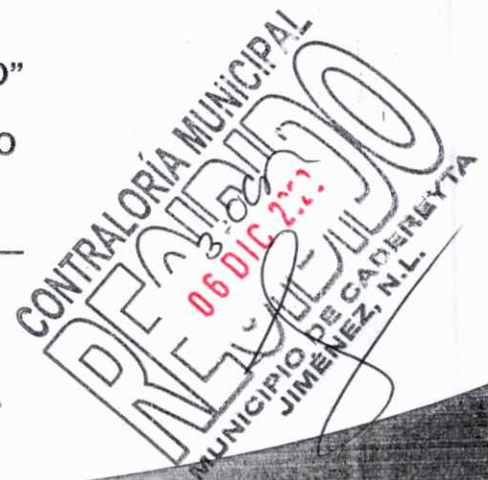 O"
O
CONTRALORÍA MUNICIPAL
RECIBIDO
06 DIC
MUNICIPIO DE CADEREYTA
JIMÉNEZ, N.L.